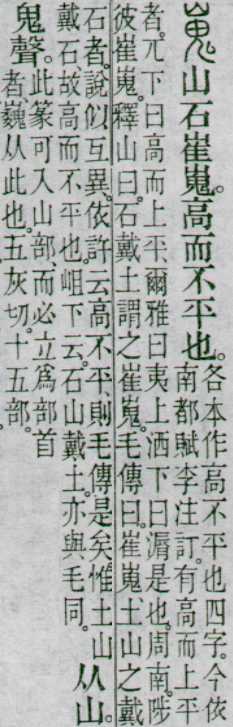 嵬山石崔嵬。高而不平也。
各本作高不平也四字。今依
南都賦李注訂。有高而上平
者。兀下曰高而上平、爾雅曰夷上洒下曰漘是也。周南。陟
彼崔嵬。釋山曰。石戴土謂之崔嵬。毛傳曰。崔嵬土山之戴
石者。說似互異。依許云高不平、則毛傳是矣。惟土山
戴石。故高而不平也。岨下云。石山戴土。亦與毛同。
从山。
鬼聲。
此篆可入山部、而必立爲部首
者、巍从此也。五灰切。十五部。